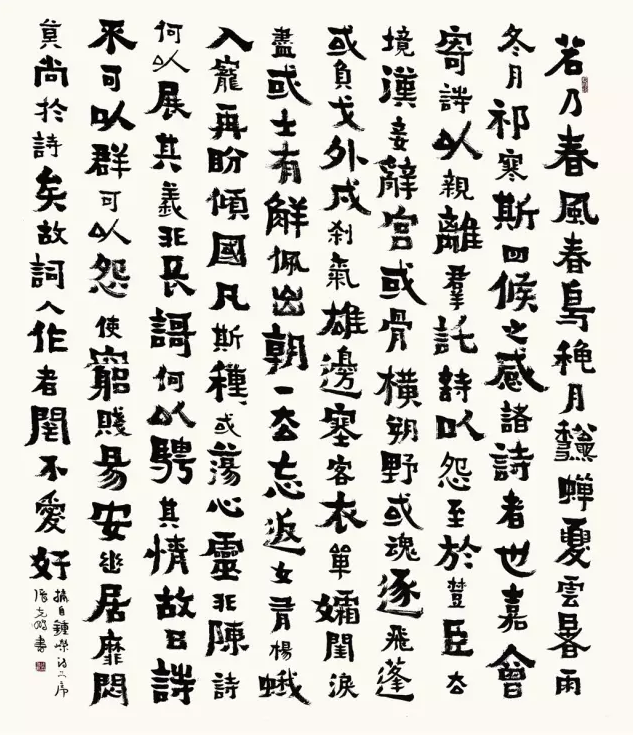 若乃春風春鳥穐月龝蟬夏雲暑雨
冬月祁寒斯四候之感諸詩者也嘉會
寄詩以親離羣託詩以怨至於楚臣去
境漢妾辭宮或骨橫朔野或魂逐飛蓬
或負戈外戍刹氣雄邊塞客衣單孀閨淚
盡或士有解佩出朝一去忘返女有楊蛾
入寵再盼傾國凡斯種或蕩心靈非陳詩
何以展其義非長謌何以騁其情故曰詩
來可以群可以怨使窮賤易安幽居靡悶
莫尚於詩矣故詞人作者罔不愛好
自鍾嶸詩序
書